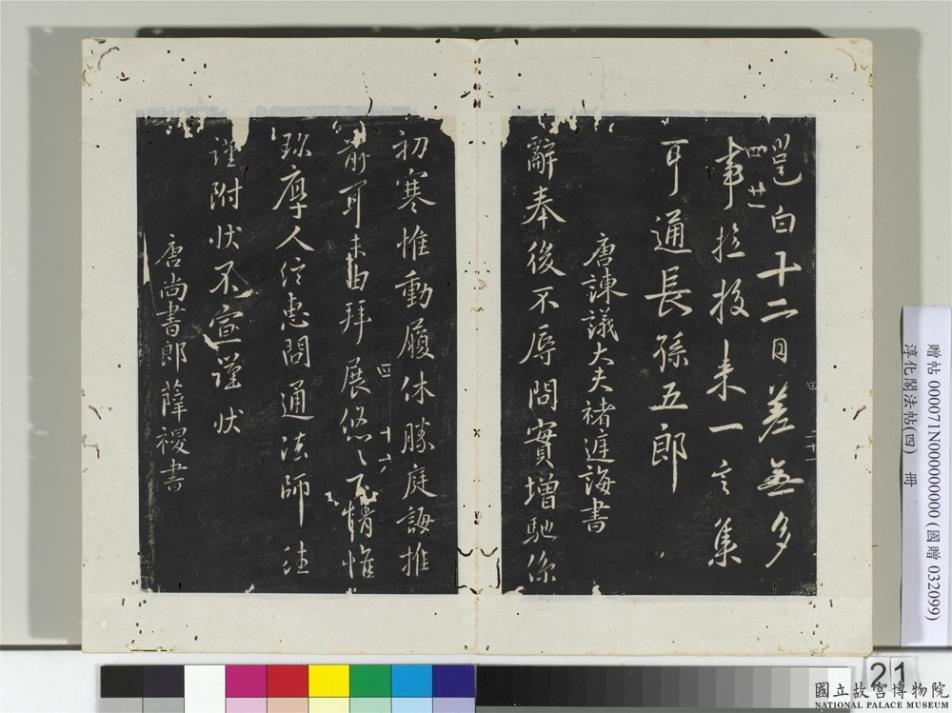 邕白十二日差無多
事拉投來一言集
耳通長孫五郎
唐諫議大夫褚遟誨書
辭奉後不辱問實增馳係
初寒惟動履休勝庭誨推
前耳未由拜展悠悠下情惟
珍厚人信惠問通法師注
謹附狀不宣謹狀
唐尚書郎薛稷書
四 廿一
四 十六
四
贈帖 000071N000000000 (國贈 032099)
淳化閣法帖(四) 冊
21
國立故宮博物院
NATIONAL PALACE MUSEUM